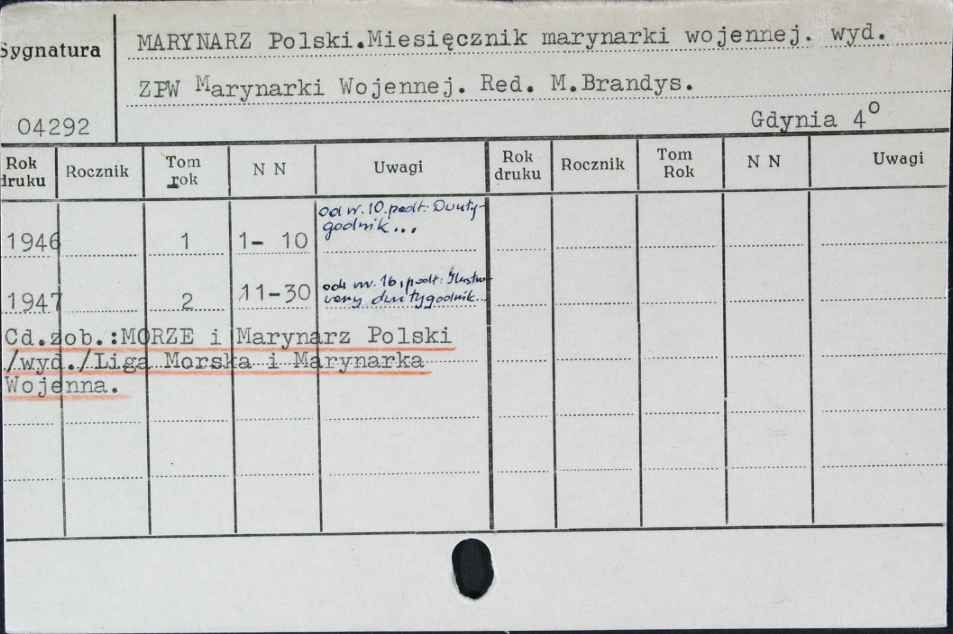 Sygnatura
MARYNARZ Polski.Miesięcznik marynarki wojennej. wyd.
ZPW Marynarki Wojennej. Red. M.Brandys.
04292
Gdynia 4o
Rok druku Rocznik Tom rok N N Uwagi Rok druku Rocznik Tom Rok N N Uwagi
od nr. 10.podt: Dwuty-
godnik...
1946 1 1- 10
od nr. 16, podt: Ilustro-
wany dwutygodnik
1947 2 11-30
Cd.zob.:MORZE i Marynarz Polski
/wyd./Liga Morska i Marynarka
Wojenna.